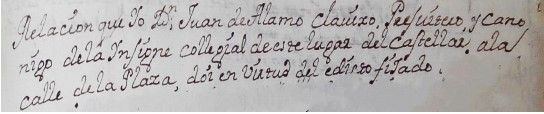 Relacion que Yo Dn. Juan de Alamo Clavixo, Presvitero, y cano
nigo de la Insigne collegial de este lugar del Castellar, a la
calle de la Plaza, doi en virtud del edicto fijado.